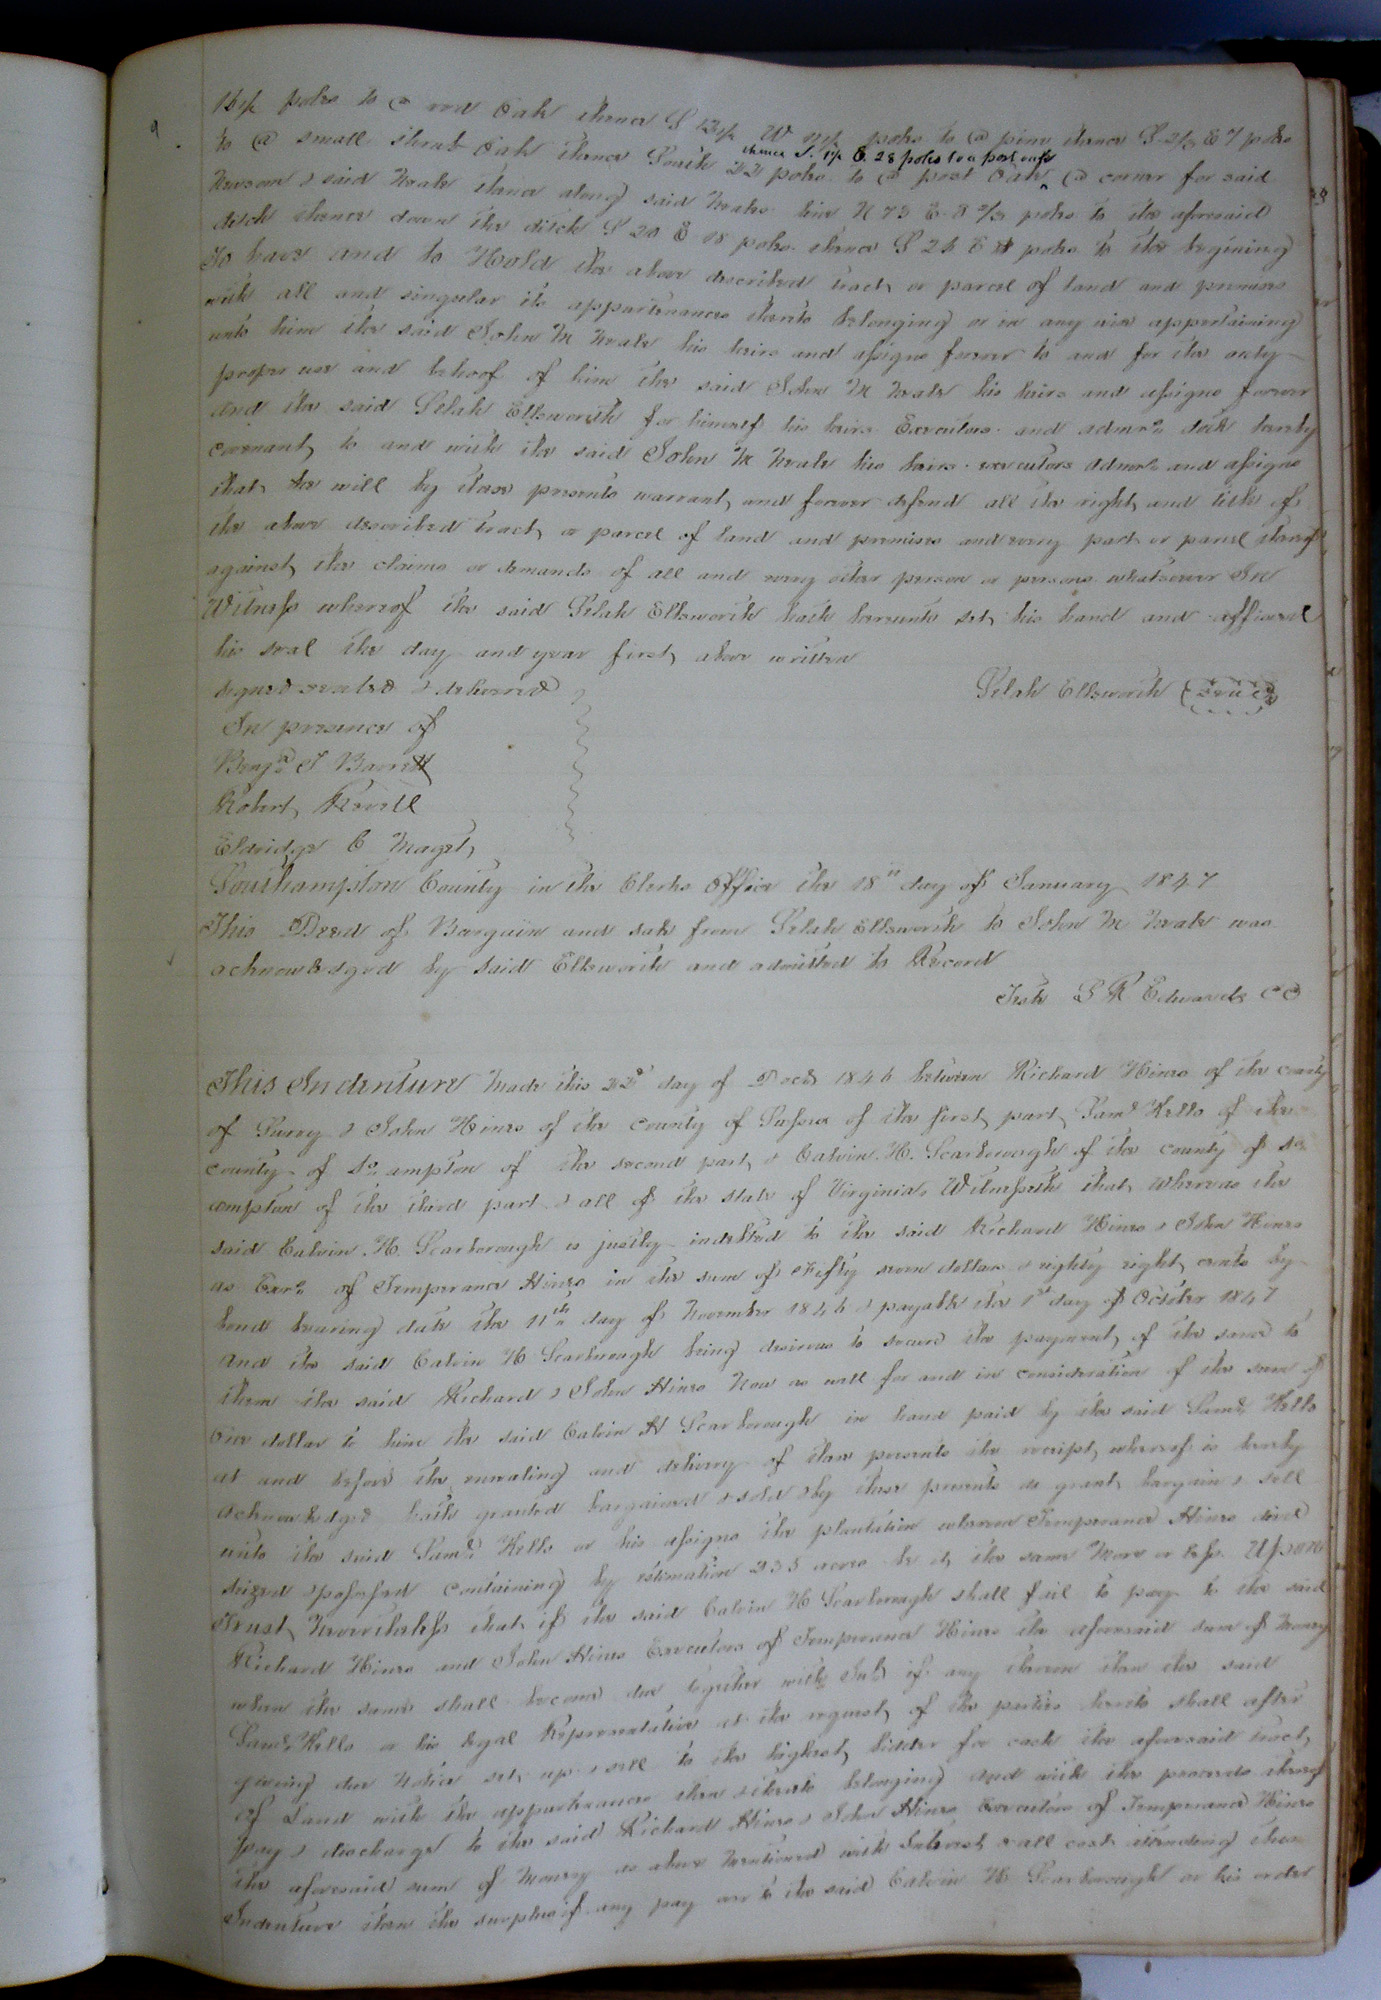 poles to a red Oak thence S W poles to @ pine thence S 2/3 E 7 poles
to @ small shrub Oak thence South 22 poles to @ post Oak @ corner for said
thence S. E. 28 poles to a post oak
Newsom & said Neale thence along said Neales line N 73 E 8 2/3 poles to the aforesaid
ditch thence down the ditch S 20 E 18 poles thence S 24 E poles to the begining
To have and to Hold the above described tract or parcel of land and premises
with all and singular its appurtenances thereto belonging or in any wise appertaining
unto him the said John M Neale his heirs and assigns forever to and for the only
proper use and behoof of him the said John M Neale his heirs and assigns forever
And the said Selah Ellsworth for himself his heirs Executors and admrs doth hereby
covenant to and with the said John M Neale his heirs executors admrs and assigns
that he will by these presents warrant and forever defend all the right and title of
the above described tract or parcel of land and premises and every part or parcel thereof
against the claims or demands of all and every other person or persons whatsoever In
Witness whereof the said Selah Ellsworth hath hereunto set his hand and affixed
his seal the day and year first above written
Signed sealed & delivered Selah Ellsworth {seal}
In presence of
Benja J Barrett
Robert
Eldridge C Maget
Southampton County in the Clerks Office the 18th day of January 1847
This Deed of Bargain and sale from Selah Ellsworth to John M Neale was
acknowledged by said Ellsworth and admitted to Record
Teste L R Edwards CC
This Indenture Made this 22d day of Decr 1846 between Richard Hines of the county
of Surry & John Hines of the county of Sussex of the first part Saml Kello of the
county of So ampton of the second part & Calvin H. Scarborough of the county of So
ampton of the third part & all of the state of Virginia Witnesseth that whereas the
said Calvin H. Scarborough is justly indebted to the said Richard Hines & John Hines
as Exrs of Temperance Hines in the sum of Fifty seven dollars & eighty eight cents by
bond bearing date the 11th day of November 1846 & payable the 1st day of October 1847
And the said Calvin H Scarborough being desirous to secure the payment of the same to
them the said Richard & John Hines Now as well for and in consideration of the sum of
One dollar to him the said Calvin H Scarborough in hand paid by the said Saml Kello
at and before the ensealing and delivery of these presents the receipt whereof is hereby
acknowledged hath granted bargained & sold & by these presents do grant bargain & sell
unto the said Saml Kello or his assigns the plantation whereon Temperance Hines died
seized & possessed containing by estimation 235 acres be it the same More or less. Upon
Trust Nevertheless that if the said Calvin H Scarborough shall fail to pay to the said
Richard Hines and John Hines Executors of Temperance Hines the aforesaid sum of Money
when the same shall become due together with Int if any thereon then the said
Saml Kello or his legal Representative at the request of the parties hereto shall after
giving due Notice set up & sell to the highest bidder for cash the aforesaid tract
of Land with the appurtenances thereunto belonging and with the proceeds thereof
pay & discharge to the said Richard Hines & John Hines Executors of Temperance Hines
the aforesaid sum of Money as above Mentioned with Interest & all cost attending this
Indenture then the surplus if any pay over to the said Calvin H Scarborough or his order